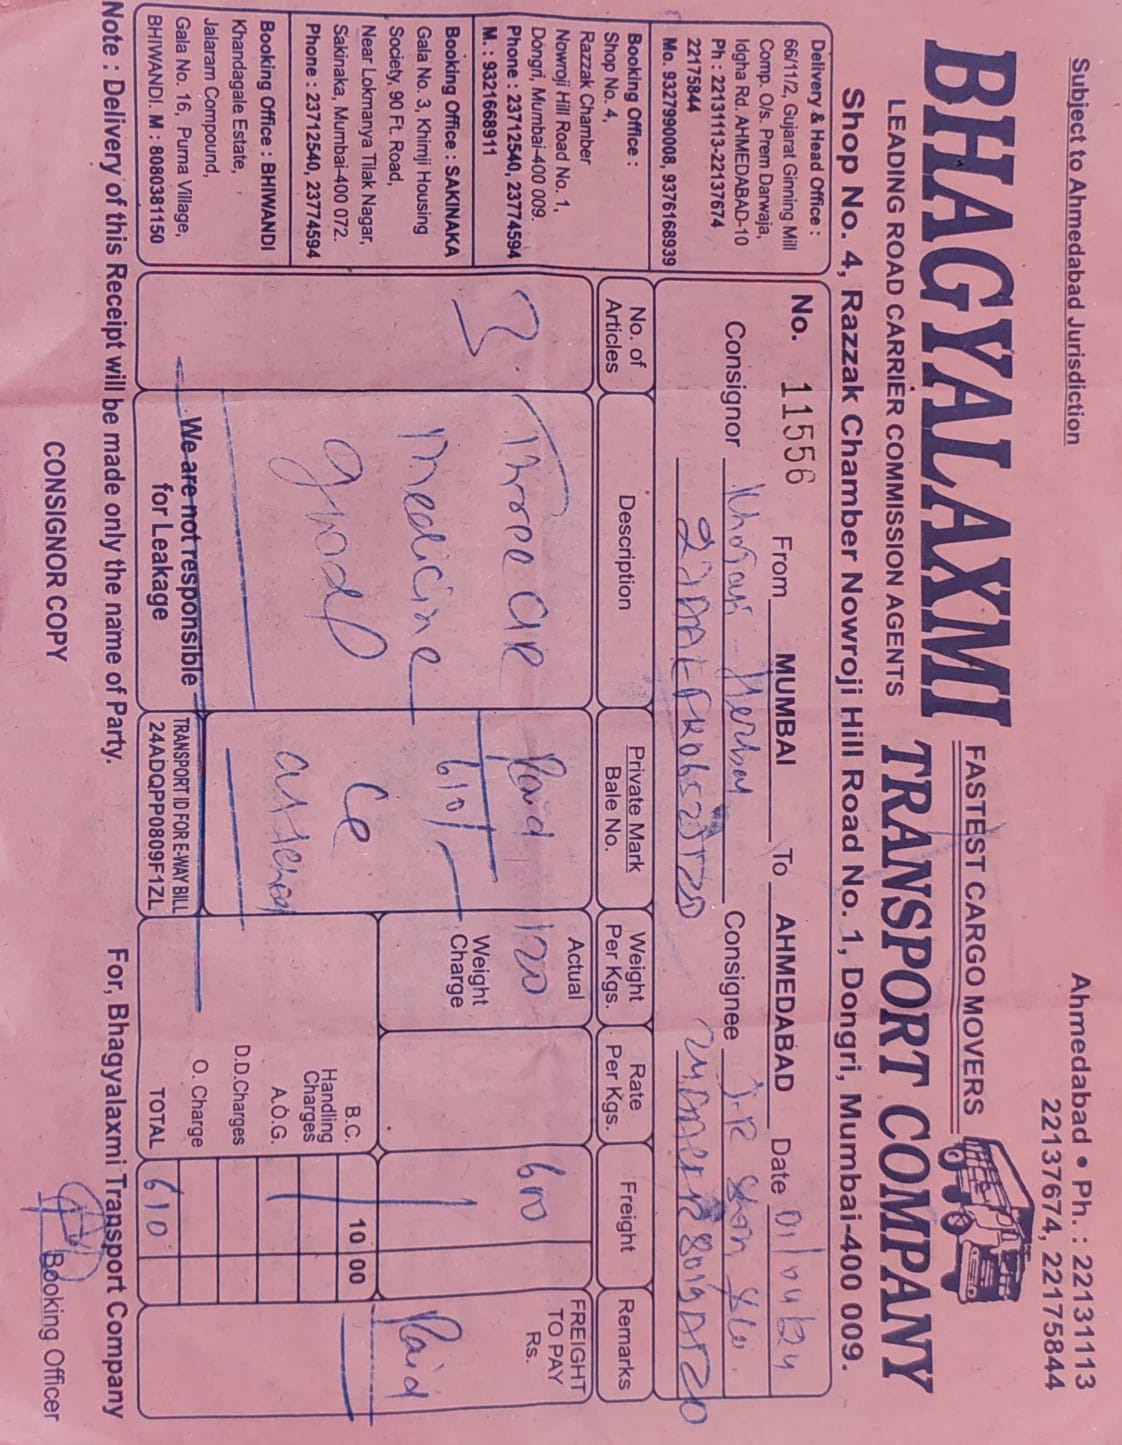 Subject to Ahmedabad Jurisdiction
Ahmedabad • Ph. : 22131113
22137674, 22175844
BHAGYALAXMI
FASTEST CARGO MOVERS
TRANSPORT COMPANY
LEADING ROAD CARRIER COMMISSION AGENTS
Shop No. 4, Razzak Chamber Nowroji Hill Road No. 1, Dongri, Mumbai-400 009.
Delivery & Head Office :
66/11/2, Gujarat Ginning Mill
Comp. O/s. Prem Darwaja,
Idgha Rd. AHMEDABAD-10
Ph : 22131113-22137674
22175844
Mo. 9327990008, 9376168939
Booking Office :
Shop No. 4,
Razzak Chamber
Nowroji Hill Road No. 1,
Dongri, Mumbai-400 009.
Phone : 23712540, 23774594
M. : 9321668911
Booking Office : SAKINAKA
Gala No. 3, Khimji Housing
Society, 90 Ft. Road,
Near Lokmanya Tilak Nagar,
Sakinaka, Mumbai-400 072.
Phone : 23712540, 23774594
Booking Office : BHIWANDI
Khandagale Estate,
Jalaram Compound,
Gala No. 16, Purna Village,
BHIWANDI. M : 8080381150
No. 11556 From MUMBAI To AHMEDABAD Date 01/04/24
Consignor Herbal Consignee J.R
No. of Articles
Description
Private Mark
Bale No.
Weight
Per Kgs.
Rate
Per Kgs.
Freight
Remarks
3
Three CR
Medicine
good
Paid
610/-
Actual
120
Weight
Charge
600
FREIGHT
TO PAY
Rs.
Paid
B.C. 10 00
Handling
Charges
A.O.G.
D.D.Charges
O. Charge
TOTAL 610
We are not responsible
for Leakage
TRANSPORT ID FOR E-WAY BILL
24ADQPP0809F1ZL
Note : Delivery of this Receipt will be made only the name of Party.
For, Bhagyalaxmi Transport Company
CONSIGNOR COPY
Booking Officer